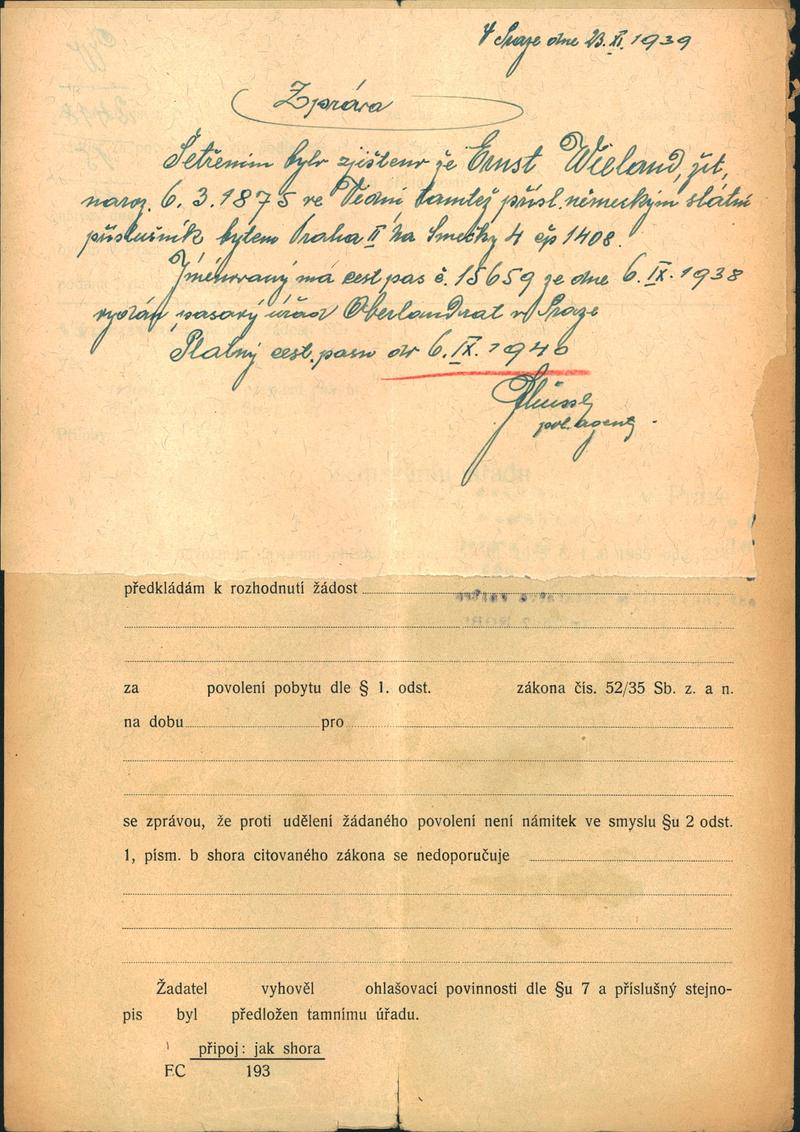 V Praze dne 23. XI. 1939
Zpráva
Šetřením bylo zjištěno že Ernst Wieland, žid,
naroz. 6. 3. 1875 ve Vědni tamtéž přísl. německým státní
příslušník bytem Praha II Na Smečky 4 čp 1408.
Jmenovaný má cest pas č. 15659 ze dne 6. IX. 1938
vydán pasový úřad Oberlandrat v Praze
Platný cest. pasu do 6. IX. 1940
pol. agent
předkládám k rozhodnutí žádost
za povolení pobytu dle § 1. odst. zákona čís. 52/35 Sb. z. a n.
na dobu pro
se zprávou, že proti udělení žádaného povolení není námitek ve smyslu §u 2 odst.
1, písm. b shora citovaného zákona se nedoporučuje
Žadatel vyhověl ohlašovací povinnosti dle §u 7 a příslušný stejno-
pis byl předložen tamnímu úřadu.
připoj: jak shora
F.C 193